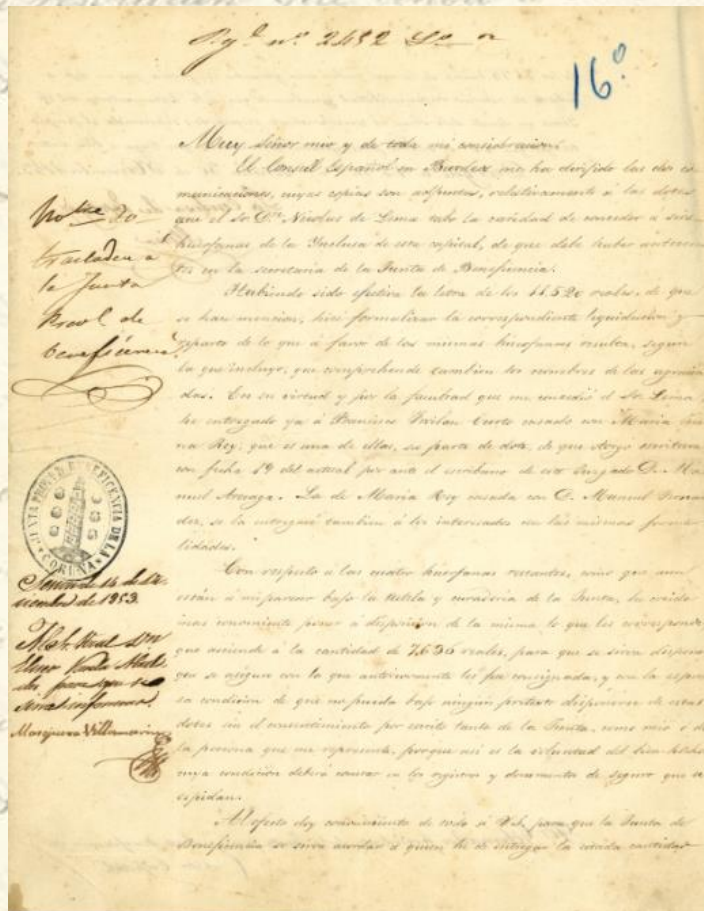 nº 2452
16º
Muy Señor mio y de toda mi consideracion:
El Consul Español en Burdeos me ha dirigido las dos co
municaciones, cuyas copias son adjuntas, relativamente á las dotes
que el Sr. Dn. Nicolas de Lima tubo la caridad de conceder a seis
huerfanas de la Inclusa de esta capital, de que debe haber antece
tes en la secretaria de la Junta de Beneficencia.
Habiendo sido efectiva la letra de los 11.520 reales, de que
se hace mencion, hice formalizar la correspondiente liquidacion y
reparto de lo que a favor de las mismas huerfanas resulta, segun
la que incluyo, que comprehende tambien los nombres de las agracia
das. En su virtud y por la facultad que me concedió el Sr. Lima
he entregado ya á Francisco casado con Maria
Rey, que es una de ellas, su parte de dote, de que otorgó escritura
con fecha 19 del actual por ante el escribano de este Juzgado D. Ma
nuel Arcaga. La de Maria Rey casada con D. Manuel
se la entregué tambien á los interesados con las mismas forma
lidades.
Con respecto a las cuatro huerfanas restantes, como que aun
están á mi parecer bajo la tutela y curaduria de la Junta, he creido
mas conveniente poner a disposicion de la misma lo que les corresponde
que asciende á la cantidad de 7.636 reales, para que se sirva disponer
que se asegure con la que anteriormente les fue consignada, y con la espre
sa condicion de que no pueda bajo ningun pretesto disponerse de estas
dotes sin el consentimiento por escrito tanto de la Junta, como mio ó de
la persona que me represente, porque asi es la voluntad del bien hechor
cuya condicion deberá constar en los registros y documentos de seguro que se
espidan.
Al efecto doy conocimiento de todo a V.S. para que la Junta de
Beneficencia se sirva acordar á quien he de entregar la citada cantidad
trasladen a
la Junta
Provl. de
Beneficencia
JUNTA PROVL. D. BENEFICENCIA DE LA CORUÑA
14 de Di-
ciembre de 1853.
para que se
sirva informar
Mosquera Villamarin